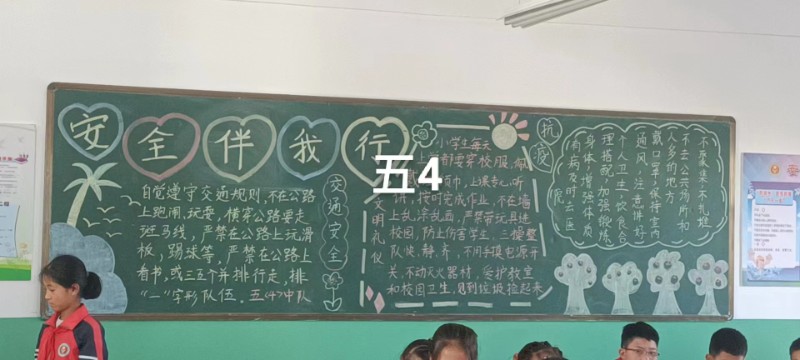 安全伴我行
五4
自觉遵守交通规则,不在公路
上跑闹,玩耍,横穿公路要走
班马线,严禁在公路上玩滑
板,踢球等,严禁在公路上
看书,或三五个并排行走,排
“一”字形队伍.五(4)中队
交通安全
文明礼仪
小学生每天
都要穿校服,佩
巾,上课专心听
讲,按时完成作业,不在墙
上乱涂乱画,严禁带玩具进
校园,防止伤害学生,上楼整
队快、静、齐,不用手摸电源开
关,不动灭火器材,爱护教室
和校园卫生,见到垃圾捡起来
抗疫
不聚集不扎班
不去公共场所和
人多的地方
戴口罩,保持室内
通风,注意讲好
个人卫生,饮食合
理搭配,加强锻炼
身体,增强体质
有病及时去医
院